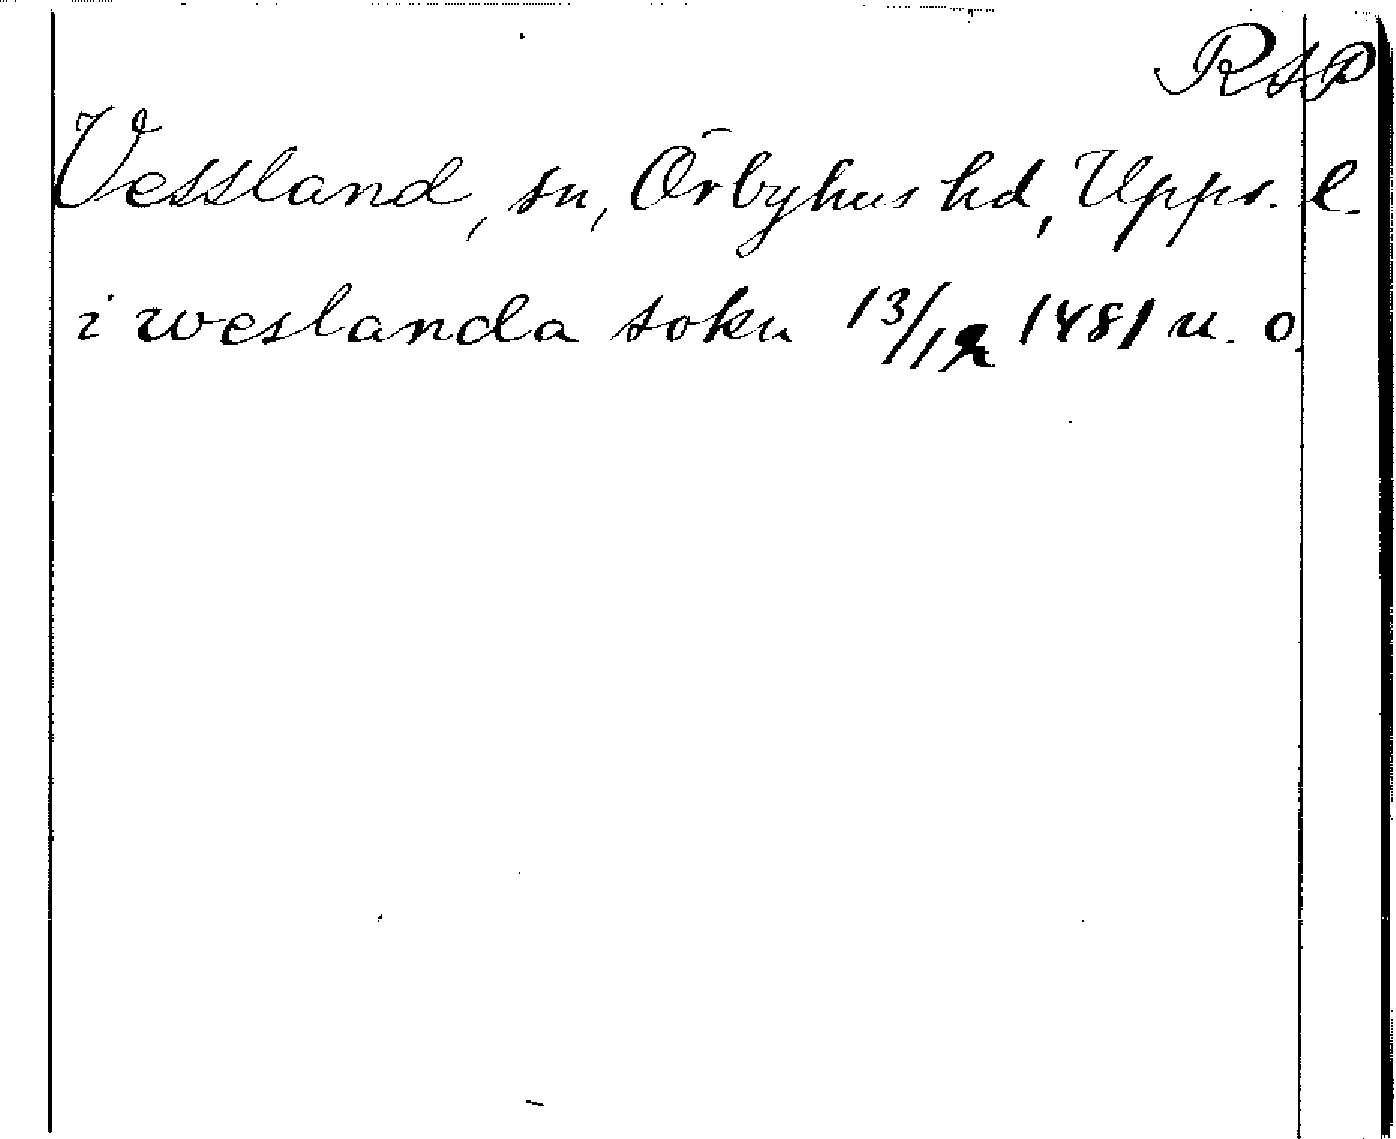 RAP
Vessland, sn, Örbyhus hd, Upps. l.
i weslanda sokn 13/12 1481 u. o.